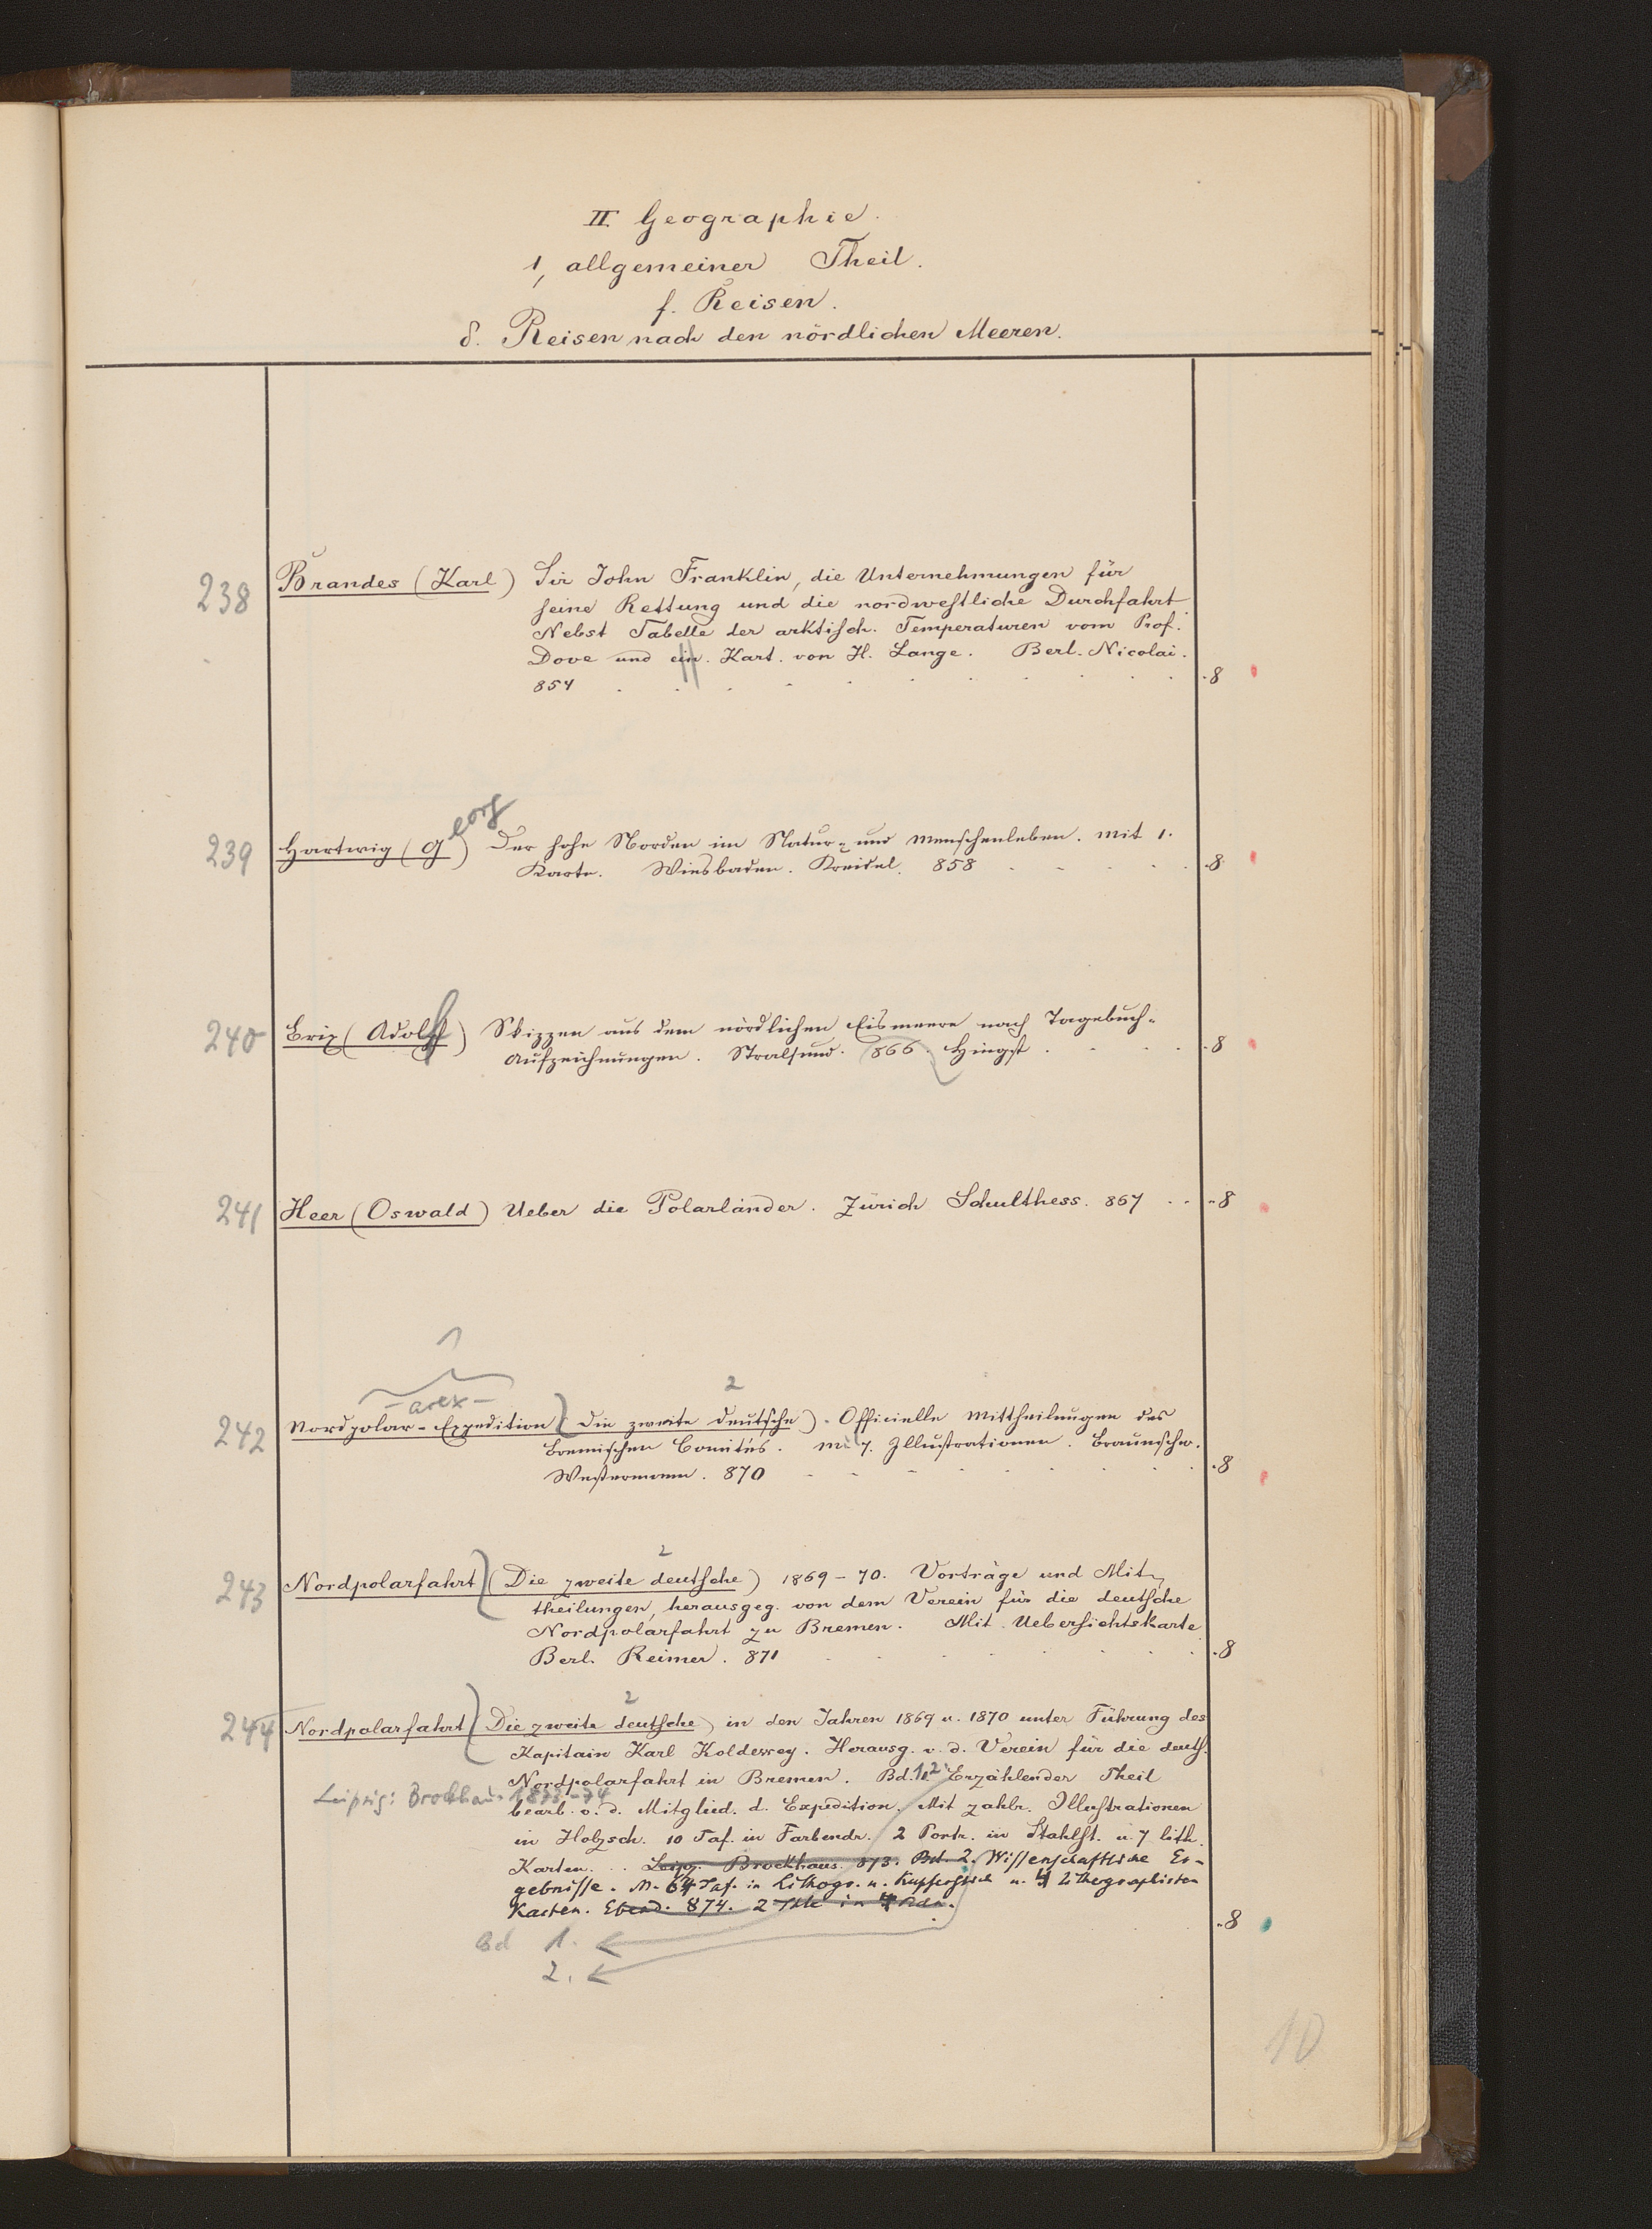 II. Geographie.
1, allgemeiner Theil.
f. Reisen.
δ. Reisen nach den nördlichen Meeren.
238 Brandes (Karl) Sir John Franklin, die Unternehmungen für
seine Rettung und die nordwestliche Durchfahrt
Nebst Tabelle der arktisch. Temperaturen vom Prof.
Dove und ein. Kart. von H. Lange. Berl. Nicolai.
854 . . . . . . . . . . 8
239 Hartwig (Georg) Der hohe Norden im Natur- und Menschenleben. Mit 1.
Karte. Wiesbaden. Kreidel. 858 . . . . . 8
240 Brix (Adolf) Skizzen aus dem nördlichen Eismeere nach Tagebuch-
Aufzeichnungen. Stralsund. 866. Hingst . . . . 8
241 Heer (Oswald) Ueber die Polarländer. Zürich Schulthess. 867 . . . 8
1
2
242 Nordpolar-Expedition (Die zweite deutsche). Officielle Mittheilungen des
Bremischen Comités. Mit 7. Illustrationen. Braunschw.
Westermann. 870 . . . . . . . . 8
2
243 Nordpolarfahrt (Die zweite deutsche) 1869-70. Vorträge und Mit-
theilungen, herausgeg. von dem Verein für die deutsche
Nordpolarfahrt zu Bremen. Mit Uebersichtskarte
Berl. Reimer. 871 . . . . . . . . 8
2
244 Nordpolarfahrt (Die zweite deutsche) in den Jahren 1869 u. 1870 unter Führung des
Kapitain Karl Koldewey. Herausg. v. d. Verein für die deuts.
Nordpolarfahrt in Bremen. Bd. 1. 2. Erzählender Theil
Leipzig: Brockhaus 1873-74
bearb. v. d. Mitglied. d. Expedition. Mit zahlr. Illustrationen
in Holzsch. 10 Taf. in Farbendr. 2 Portr. in Stahlst. u. 7 lith.
Karten. . . Leipz. Brockhaus. 873. Bd. 2. Wissenschaftliche Er-
gebnisse. M. 64 Taf. in Lithogr. u. Kupferstich u. 4 lithographirten
Karten. Ebend. 874. 2 Thle in 4 Bdn.
. 8
Bd 1.
2.
10